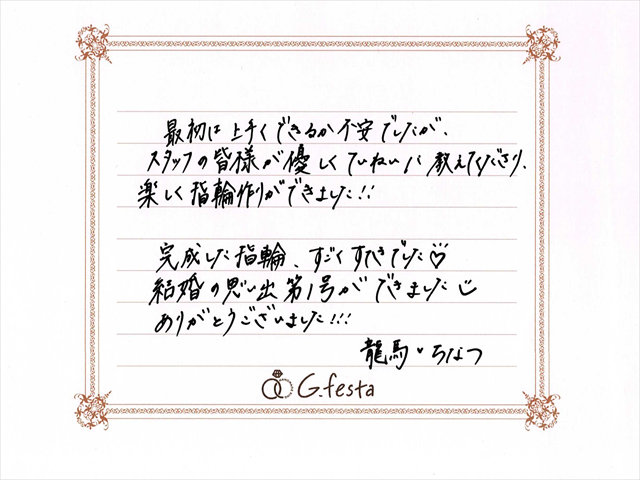 最初は上手くできるか不安でしたが、
スタッフの皆様が優しくていねいに教えてくださり、
楽しく指輪作りができました!!
完成した指輪、すごくすてきでした♡
結婚の思い出第1号ができました
ありがとうございました!!!
龍馬・ちなつ
G.festa